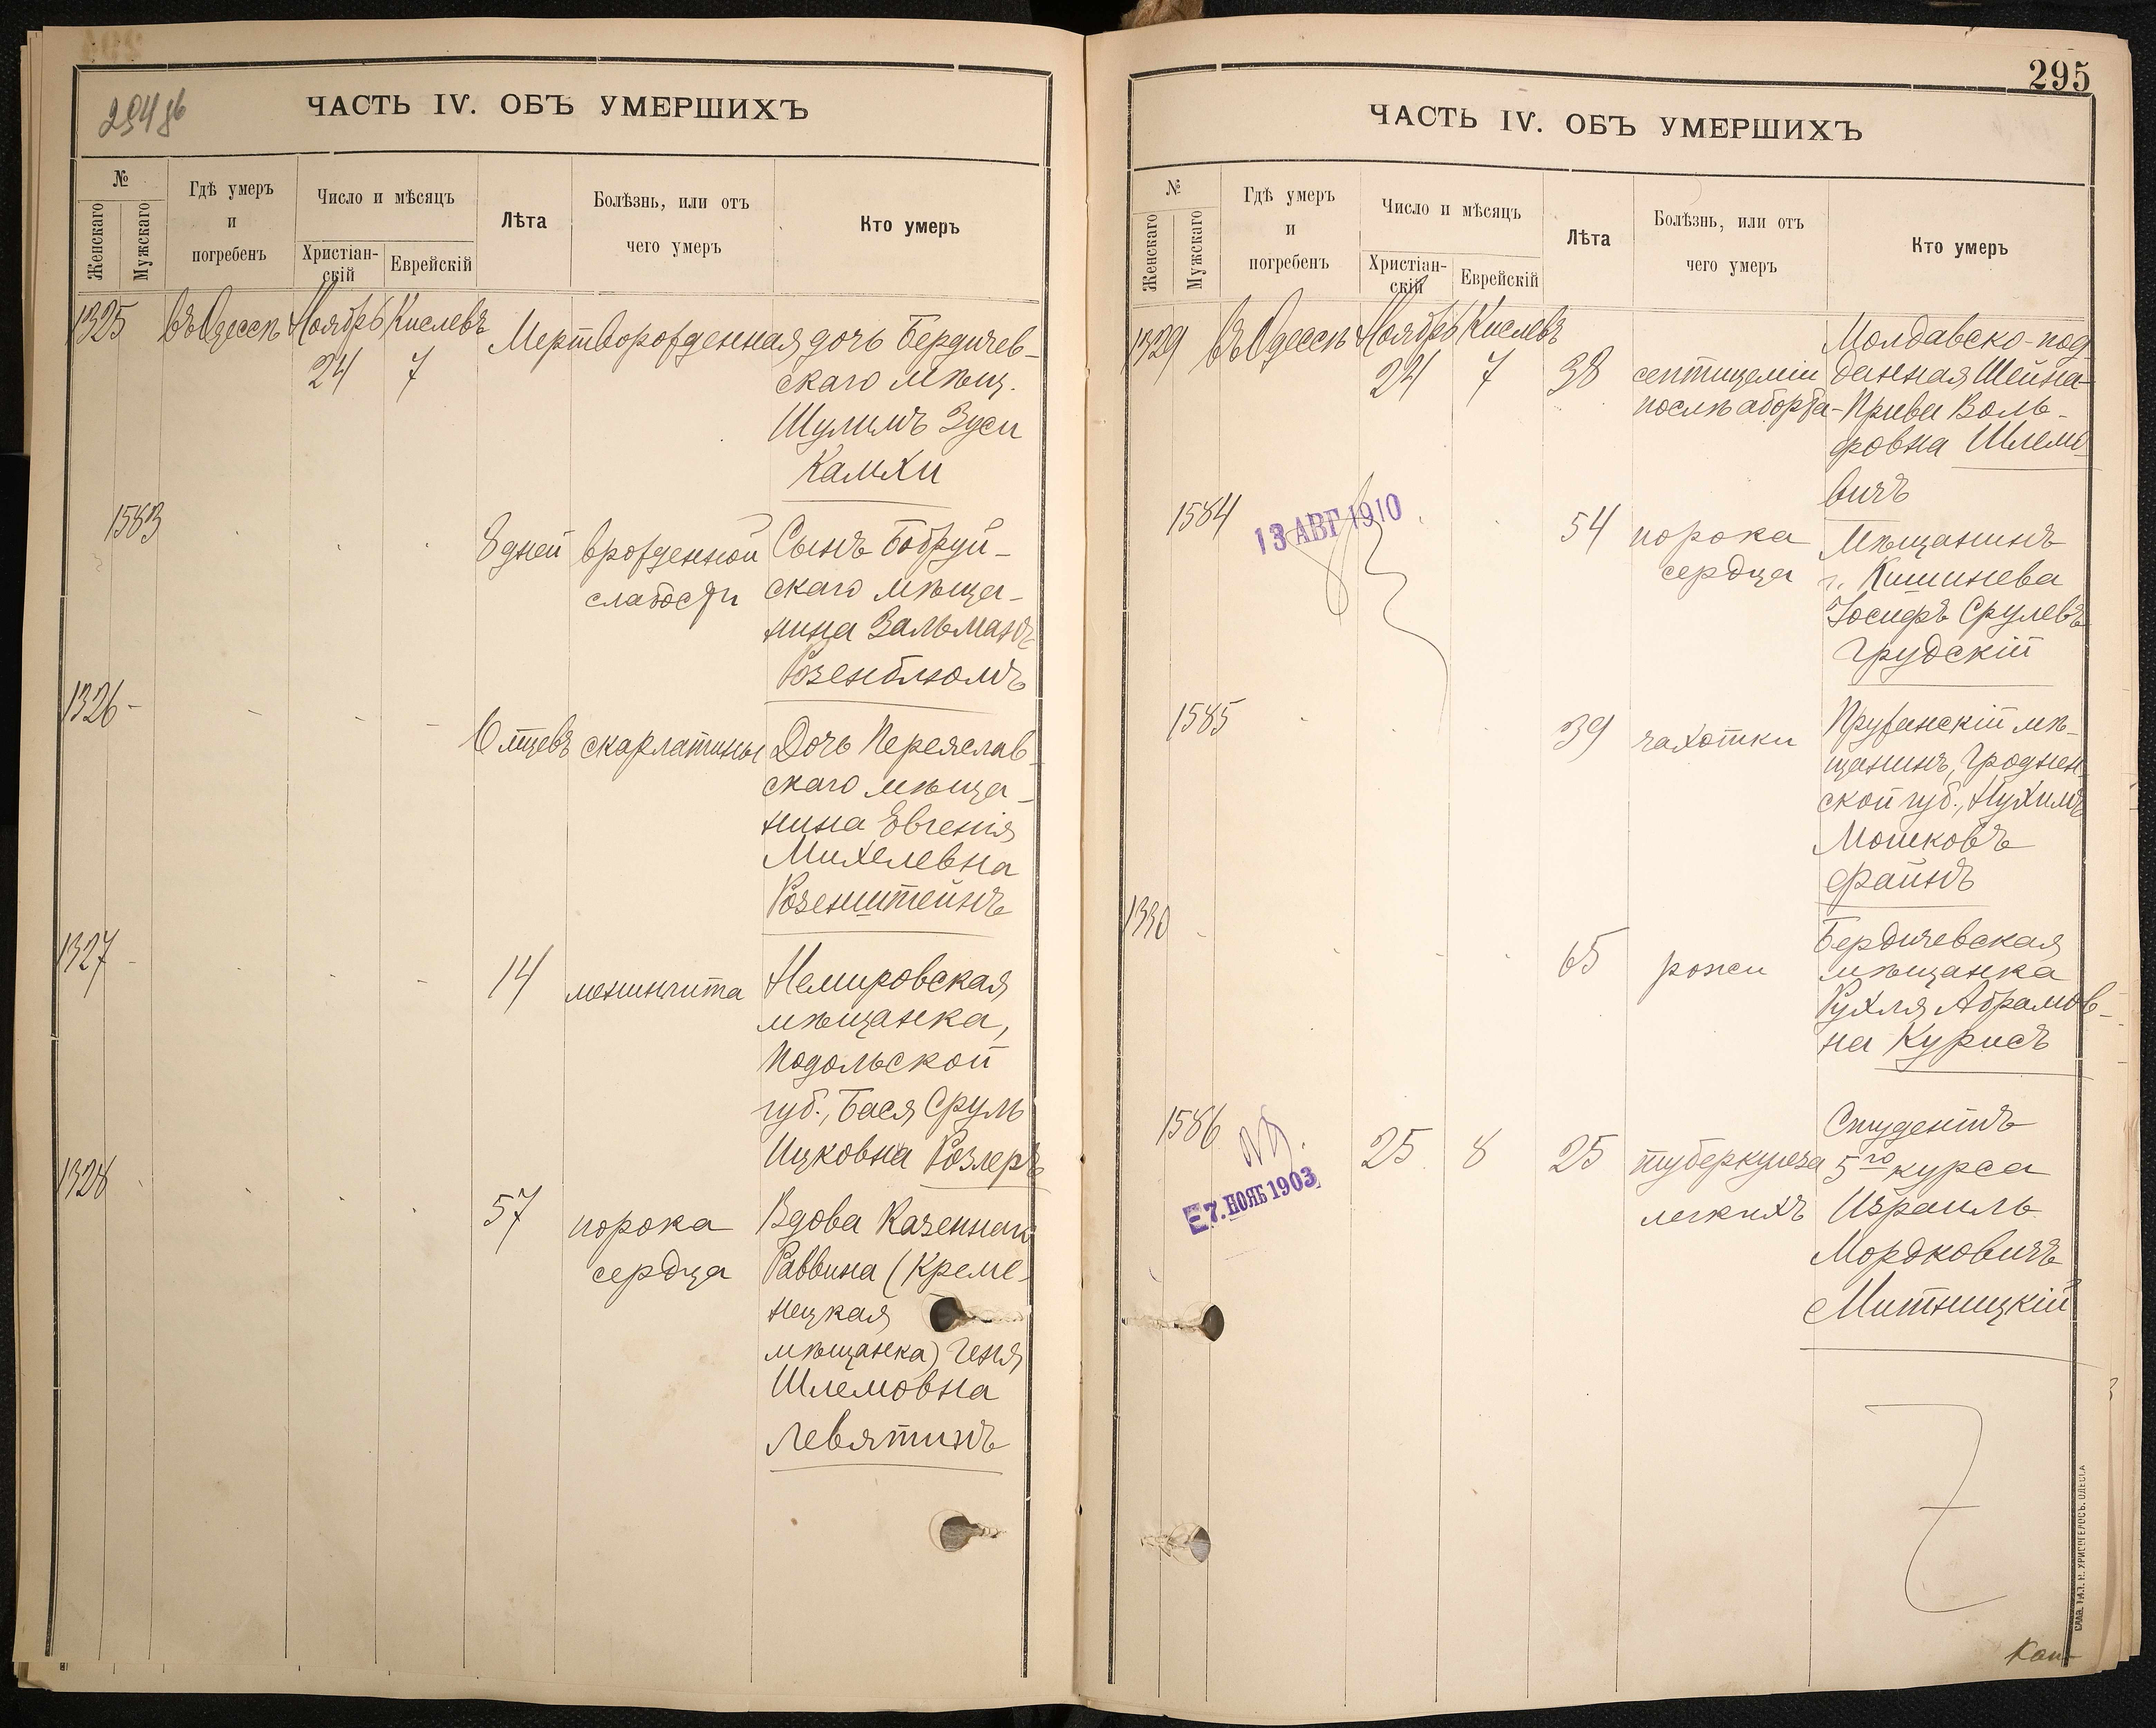 294 об
ЧАСТЬ IV. ОБЪ УМЕРШИХЪ
№
Женскаго
Мужскаго
Гдѣ умеръ
и
погребенъ
Число и мѣсяцъ
Христіан-
скій
Еврейскій
Лѣта
Болѣзнь, или отъ
чего умеръ
Кто умеръ
1325 въ Одессѣ Ноябрь Кислевъ Мертворожденная дочь Бердичев-
24 7 скаго мѣщ.
Шулимъ Зуси
Камхи
1583
8 дней врожденной Сынъ Бобруй-
слабости скаго мѣща-
нина Зальманъ
Розенблюмъ
1326
6 мцевъ скарлатины Дочь Переяслав-
скаго мѣща-
нина Евгенія
Михелевна
Розенштейнъ
1327
14 менингита Немировская
мѣщанка,
Подольской
губ., Бася Сруль
Ицковна Розлеръ
1328
57 порока Вдова Казеннаго
сердца Раввина (Креме-
нецкая
мѣщанка) Геня
Шлемовна
Левятинъ
295
ЧАСТЬ IV. ОБЪ УМЕРШИХЪ
№
Женскаго
Мужскаго
Гдѣ умеръ
и
погребенъ
Число и мѣсяцъ
Христіан-
скій
Еврейскій
Лѣта
Болѣзнь, или отъ
чего умеръ
Кто умеръ
1329 въ Одессѣ Ноябрь Кислевъ Молдавско-под-
24 7 38 септицеміи данная Шейна-
послѣ аборта Прива Воль-
фовна Шлемо-
вичъ
1584 13 АВГ 1910
54 порока Мѣщанинъ
сердца г. Кишинева
Іосифъ Срулевъ
Грудскій
1585
39 чахотки Пружанскій мѣ-
щанинъ, Гроднен-
ской губ., Нухимъ
Мошковъ
Файнъ
1330
65 рожи Бердичевская
мѣщанка
Рухля Абрамов-
на Курисъ
1586
25 8 25 туберкулеза Студентъ
5го курса
легкихъ Израиль
Мордковичъ
Митницкій
7. НОЯБ 1903